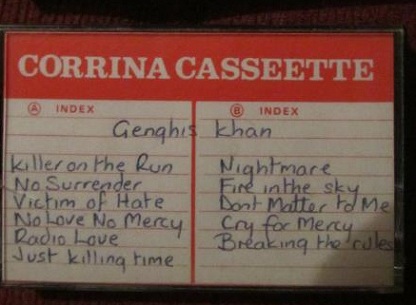 CORRINA CASSEETTE
A INDEX
B INDEX
Genghis Khan
Killer on the Run
No Surrender
Victim of Hate
No Love No Mercy
Radio Love
Just killing time
Nightmare
Fire in the sky
Dont Matter to Me
Cry for Mercy
Breaking the rules